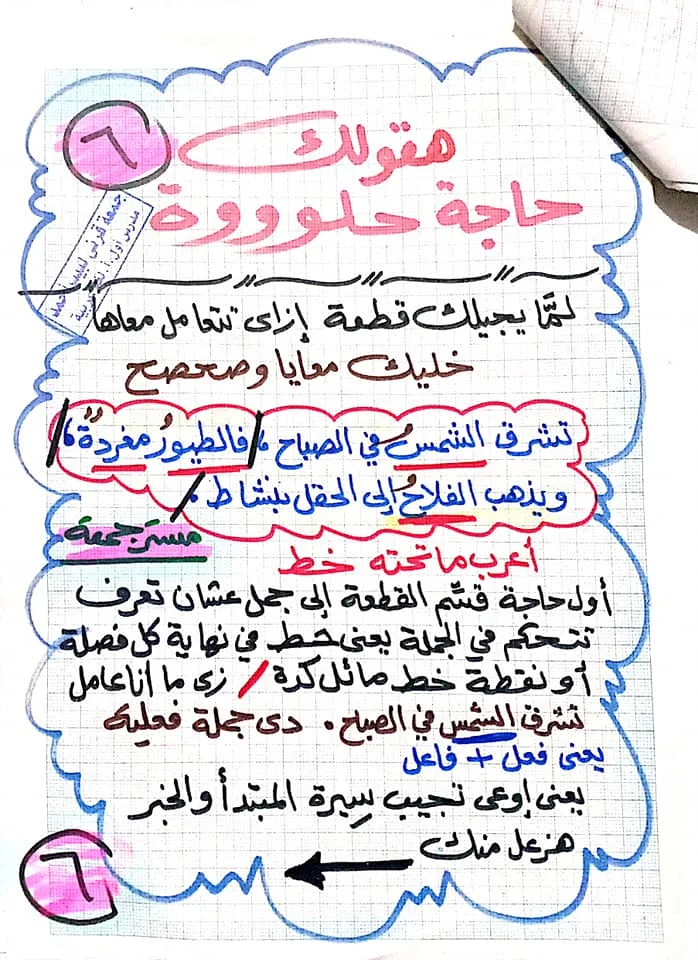 ٦
هقولك
حاجة حلوووة
جمعة قرني لبيب
مدرس أول أ.
لمَّا يجيلك قطعة إزاى تتعامل معاها
خليك معايا وصحصح
تشرق الشمسُ في الصباح ،/ فالطيورُ مغردةٌ ،/
ويذهب الفلاحُ إلى الحقل بنشاط ./
مستر جمعة
أعرب ما تحته خط
أول حاجة قسِّم القطعة إلى جمل عشان تعرف
تتحكم في الجملة يعنى حُط في نهاية كل فصلة
أو نقطة خط مائل كدة / زى ما أنا عامل
تشرق الشمس في الصباح . دى جملة فعلية
يعنى فعل + فاعل
يعنى إوعى تجيب سيرة المبتدأ والخبر
هزعل منك
٦